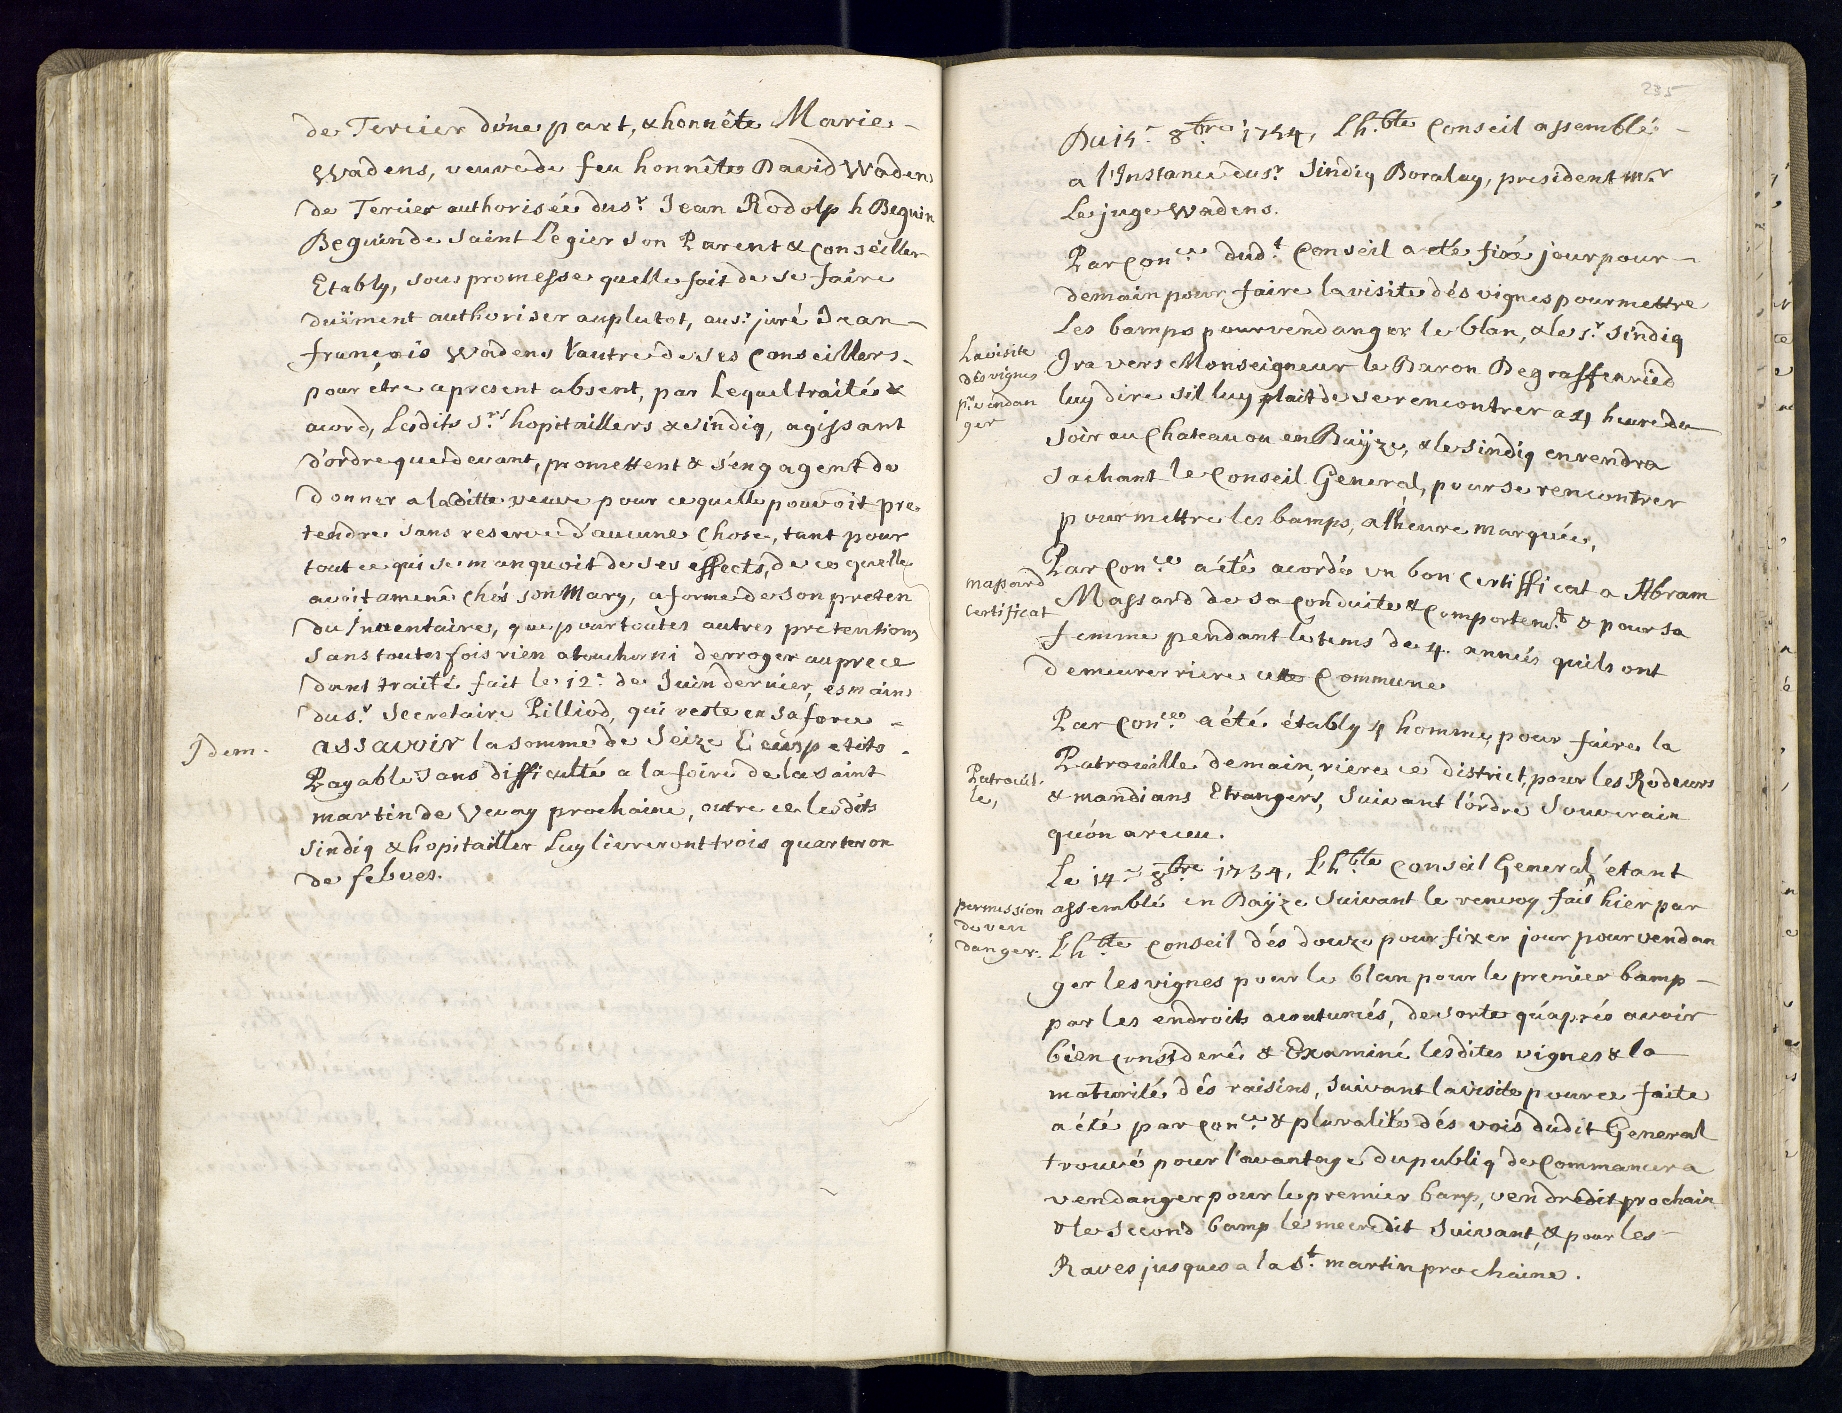 de Tercier d'une part, & honnête Marie -
Wadens, veuve de feu honnête David Wadens
de Tercier authorisée du sr. Jean Rodolph Beguin
Beguin de Saint Legier son Parent & Conseiller
Etably, sous promesse quelle fait de se faire
duëment authoriser au plutot, au sr. juré Jean -
françois Wadens l'autre de ses Conseillers -
pour etre a present absent, par Lequel traité &
acord, Lesdits Srs. hopitaillers & sindiq, agissant
d'ordre que devant, promettent & s'engagent de
donner a laditte veuve pour ce quelle pouvoit pre
tendre sans reserve d'aucune Chose, tant pour
tout ce qui se manquoit de ses effects, de ce quelle
avoit amené chés son Mary, a forme de son preten
du Inventaire, que pour toutes autres prétentions
Sans toutes fois rien atoucher ni derroger au prece
dant traité fait le 12e. de Juin dernier, és mains
du sr. Secretaire Pilliod, qui reste en sa force -
Idem -
assavoir la somme de Seize Ecus petits -
Payable sans difficulté a la foire de la saint
martin de Vevay prochaine, outre ce lesdits
sindiq & hopitailler Luy livreront trois quarteron
de febves.
235
Du 13e. 8bre. 1734, Lh.ble Conseil assemblé -
a l'Instance du sr. Sindiq Boraley, president mr.
Le juge Wadens.
Par Con.ce dud.t Conseil a eté fixé jour pour -
demain pour faire la visite dés vignes pour mettre
Les bamps pour vendanger le blan, & le sr. Sindiq
La visite
dés vignes
pr. vendan
ger
Ira vers Monseigneur le Baron Degraffenried
luy dire sil luy plait de se rencontrer a 4 heure du
soir au Chateau ou en Baÿze, & le sindiq en rendra
sachant le Conseil General, pour se rencontrer
pour mettre les bamps, a lheure marquée,
massard
Certificat
Par Con.ce a été acordé un bon Certifficat a Abram
Massard de sa Conduite & Comportem.t & pour sa
femme pendant le tems de 4. annés quils ont
demeurer riere cette Commune
Par Con.ce a été étably 4 homme, pour faire la
Patrouil-
le,
Patrouille demain, riere ce district, pour les Rodeurs
& mandians Etrangers, Suivant l'ordre Souverain
qu'on a receu.
Le 14e. 8bre. 1734, Lh.ble Conseil General étant
permission
de ven
danger.
assemblé en Baÿze Suivant le renvoy fait hier par
Lh.ble Conseil dés douze pour fixer jour pour vendan
ger les vignes pour le blan pour le premier bamp -
par les endroits acoutumés, de sorte qu'aprés avoir
bien consideré & Examiné lesdites vignes & la
maturité dés raisins, Suivant la visite pour ce faite
a été par Con.ce & pluralité dés vois dudit General
trouvé pour l'avantage du publiq de Commancer a
vendanger pour le premier bamp, vendredit prochain
& le second bamp le mecredit Suivant, & pour les -
Raves jusques a la St. martin prochaine.